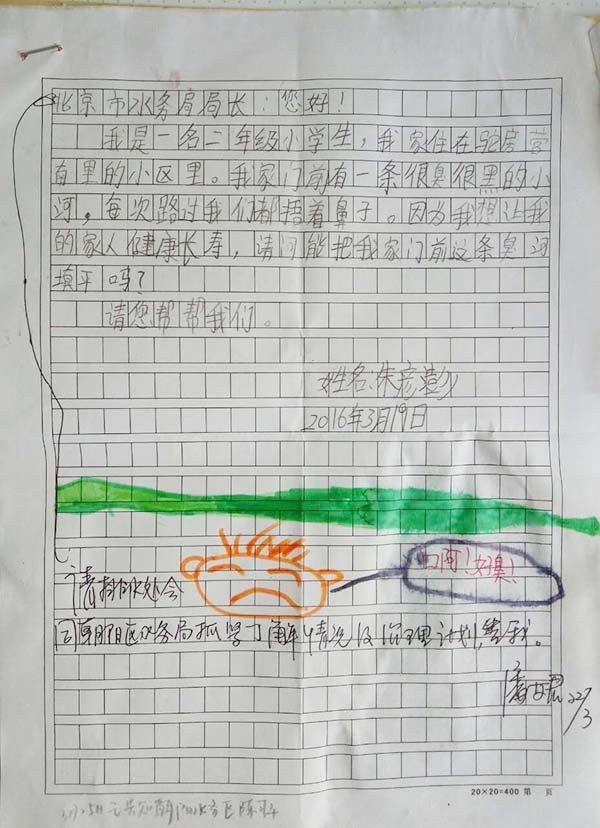 北京市水务局局长：您好！
我是一名二年级小学生，我家住在驼房营
南里的小区里。我家门前有一条很臭很黑的小
河，每次路过我们都捂着鼻子。因为我想让我
的家人健康长寿，请问能把我家门前这条臭河
填平吗？
请您帮帮我们。
姓名：朱彦澎
2016年3月19日
啊！好臭！
请排水处会
同朝阳区水务局抓紧了解情况及治理计划，告我。
27/3
20×20=400 第 页